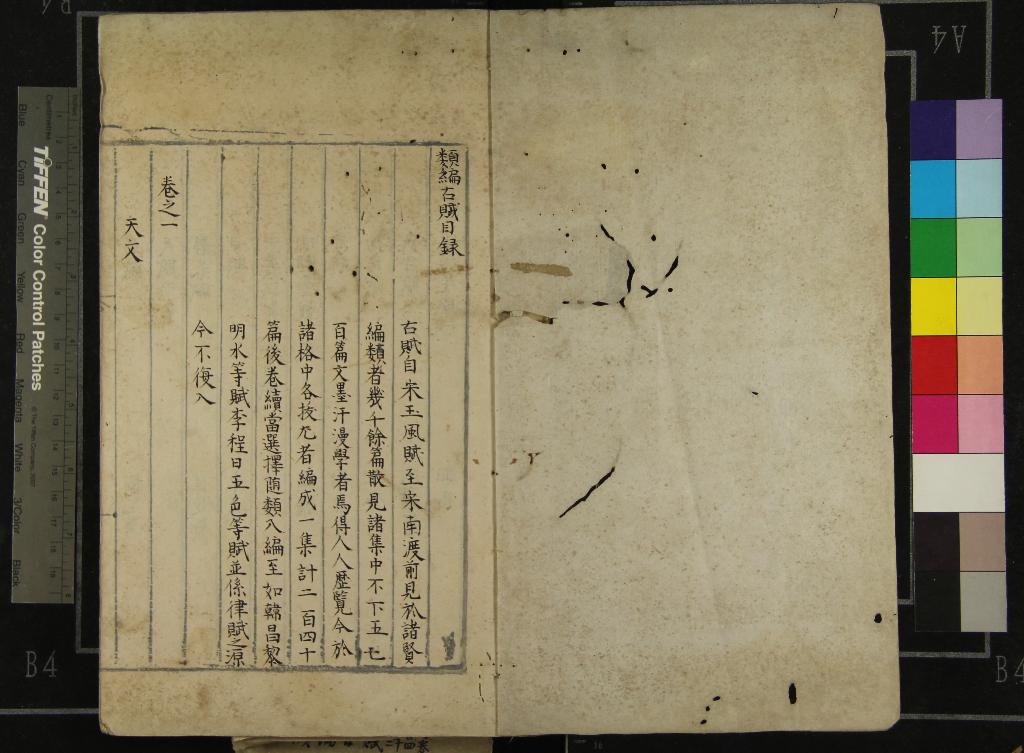 類編古賦目録
古賦自宋玉風賦至宋南渡前見於諸賢
編類者幾千餘篇散見諸集中不下五七
百篇文墨汗漫學者焉得人人歷覽今於
諸格中各拔尤者編成一集計二百四十
篇後卷續當選擇随類入編至如韓昌黎
明水等賦李程日五色等賦並係律賦之源
今不復入
卷之一
天文
TIFFEN Color Control Patches
Blue
Cyan
Green
Yellow
Red
Magenta
White
3/Color
Black
Centimetres
A4
B4
B4